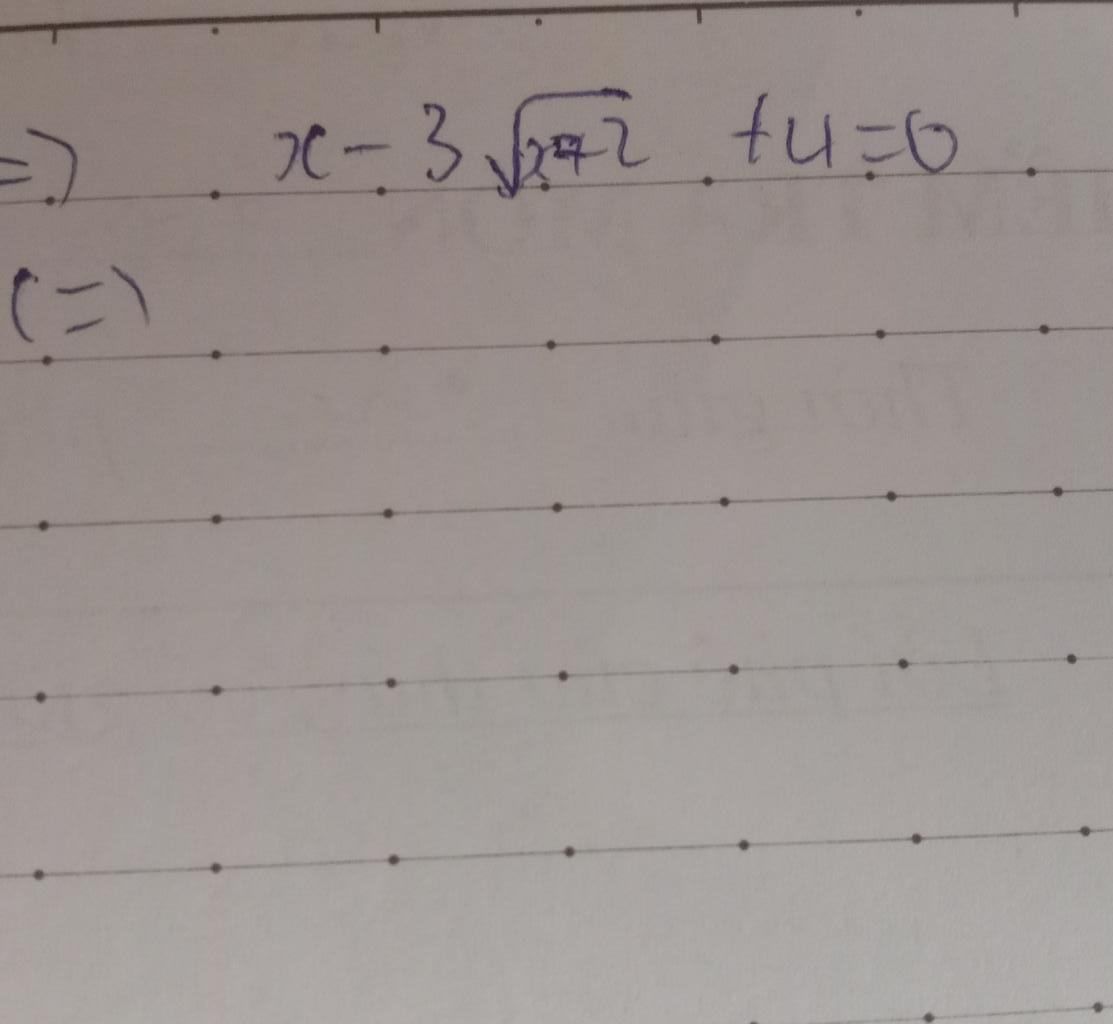 => x - 3 √(x+2) + 4 = 0
(=)